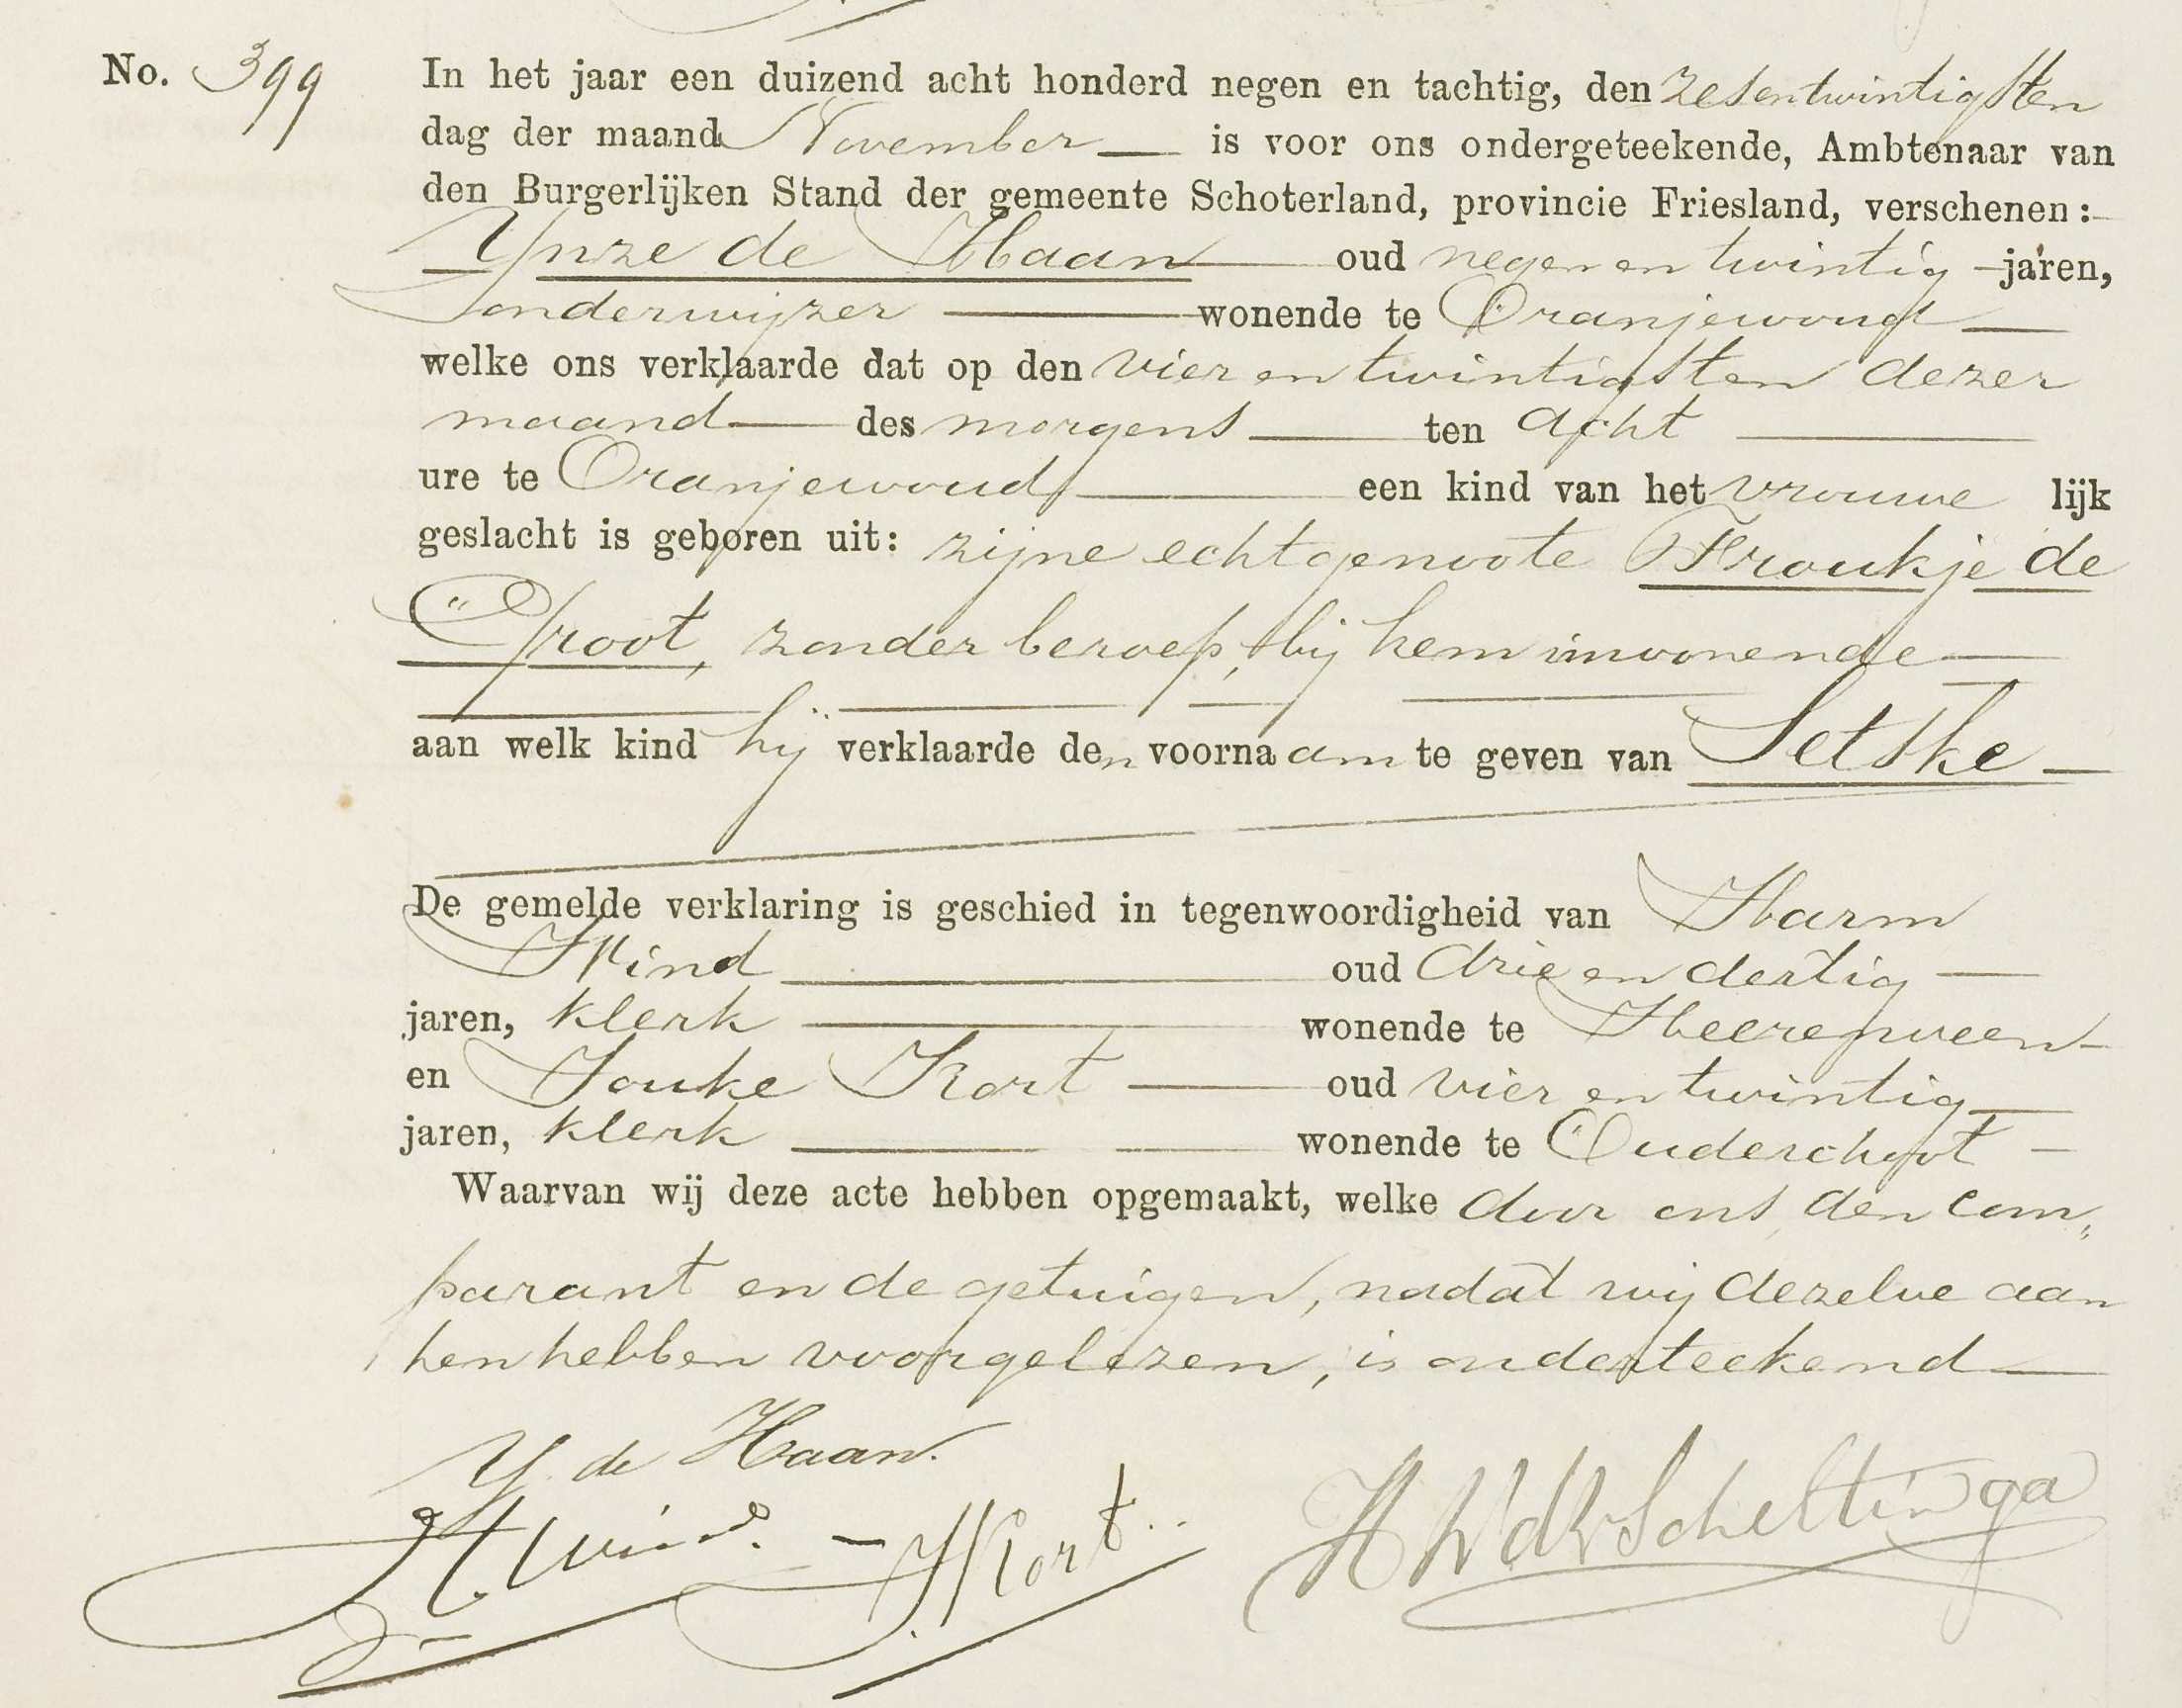 No. 399 In het jaar een duizend acht honderd negen en tachtig, den zesentwintigsten
dag der maand November is voor ons ondergeteekende, Ambtenaar van
den Burgerlijken Stand der gemeente Schoterland, provincie Friesland, verschenen:
Ynze de Haan oud negen en twintig jaren,
onderwijzer wonende te Oranjewoud
welke ons verklaarde dat op den vier en twintigsten dezer
maand des morgens ten acht
ure te Oranjewoud een kind van het vrouwe lijk
geslacht is geboren uit: zijne echtgenoote Froukje de
Groot, zonder beroep, bij hem inwonende
aan welk kind hij verklaarde den voornaam te geven van Setske
De gemelde verklaring is geschied in tegenwoordigheid van Harm
Wind oud drie en dertig
jaren, klerk wonende te Heerenveen
en Jouke Kort oud vier en twintig
jaren, klerk wonende te Ouderschoot
Waarvan wij deze acte hebben opgemaakt, welke door ons, den com„
parant en de getuigen, nadat wij dezelve aan
hen hebben voorgelezen, is onderteekend
Y. de Haan.
H. Wind. - J Kort.. 
Scheltinga